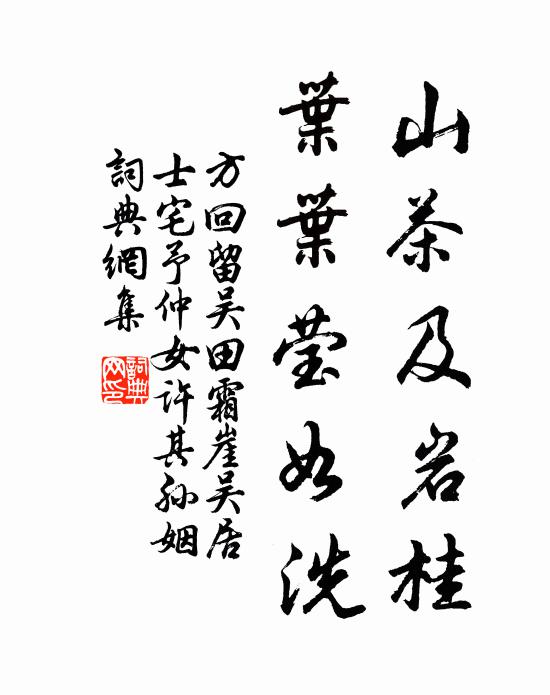 山茶及岩桂
葉葉瑩如洗
方回留吴田霜崖吴居
士宅予仲女許其孙姻
詞典網集
詞典網印